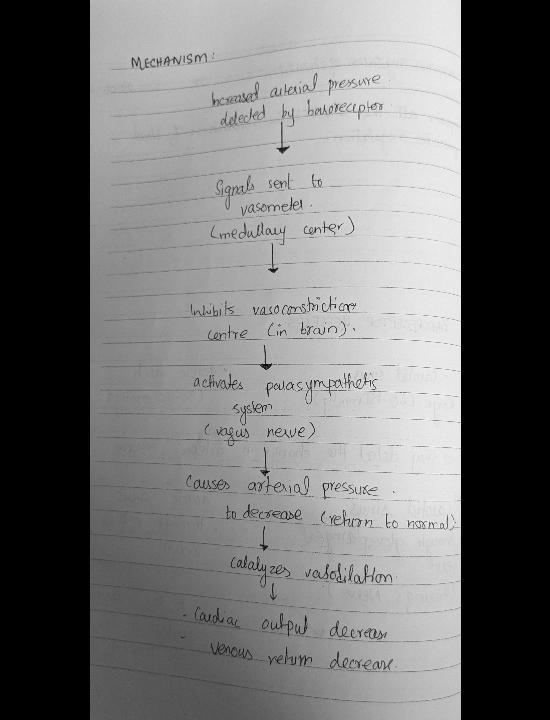 MECHANISM:
Increased arterial pressure.
detected by baroreceptor.
Signals sent to
vasometer.
(medullary center)
Inhibits vasoconstriction
centre (in brain).
activates parasympathetis
system
(vagus nerve)
Causes arterial pressure.
to decrease (return to normal)
Catalyzes vasodilation
- Cardiac output decreas
- venous return decrease.